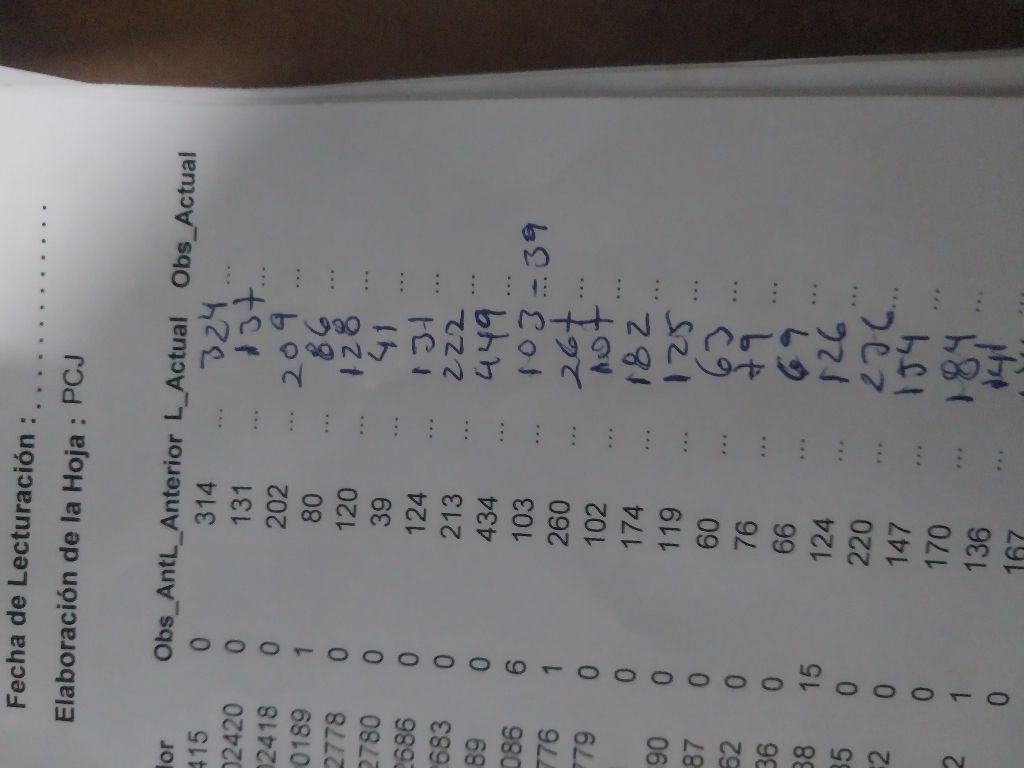 Fecha de Lecturación : . . . . . . . . . . . . . . . . .
Elaboración de la Hoja : PCJ
dor Obs_AntL_Anterior L_Actual Obs_Actual
415 0 314 ... 324 ...
02420 0 131 ... 137 ...
02418 0 202 ... 209 ...
00189 1 80 ... 86 ...
2778 0 120 ... 128 ...
2780 0 39 ... 41 ...
2686 0 124 ... 131 ...
2683 0 213 ... 222 ...
89 0 434 ... 449 ...
086 6 103 ... 103 ... - 39
776 1 260 ... 267 ...
779 0 102 ... 107 ...
0 174 ... 182 ...
90 0 119 ... 125 ...
87 0 60 ... 63 ...
62 0 76 ... 79 ...
36 0 66 ... 69 ...
38 15 124 ... 126 ...
35 0 220 ... 236 ...
2 0 147 ... 154 ...
0 170 ... 184 ...
2 1 136 ... 141
0 167